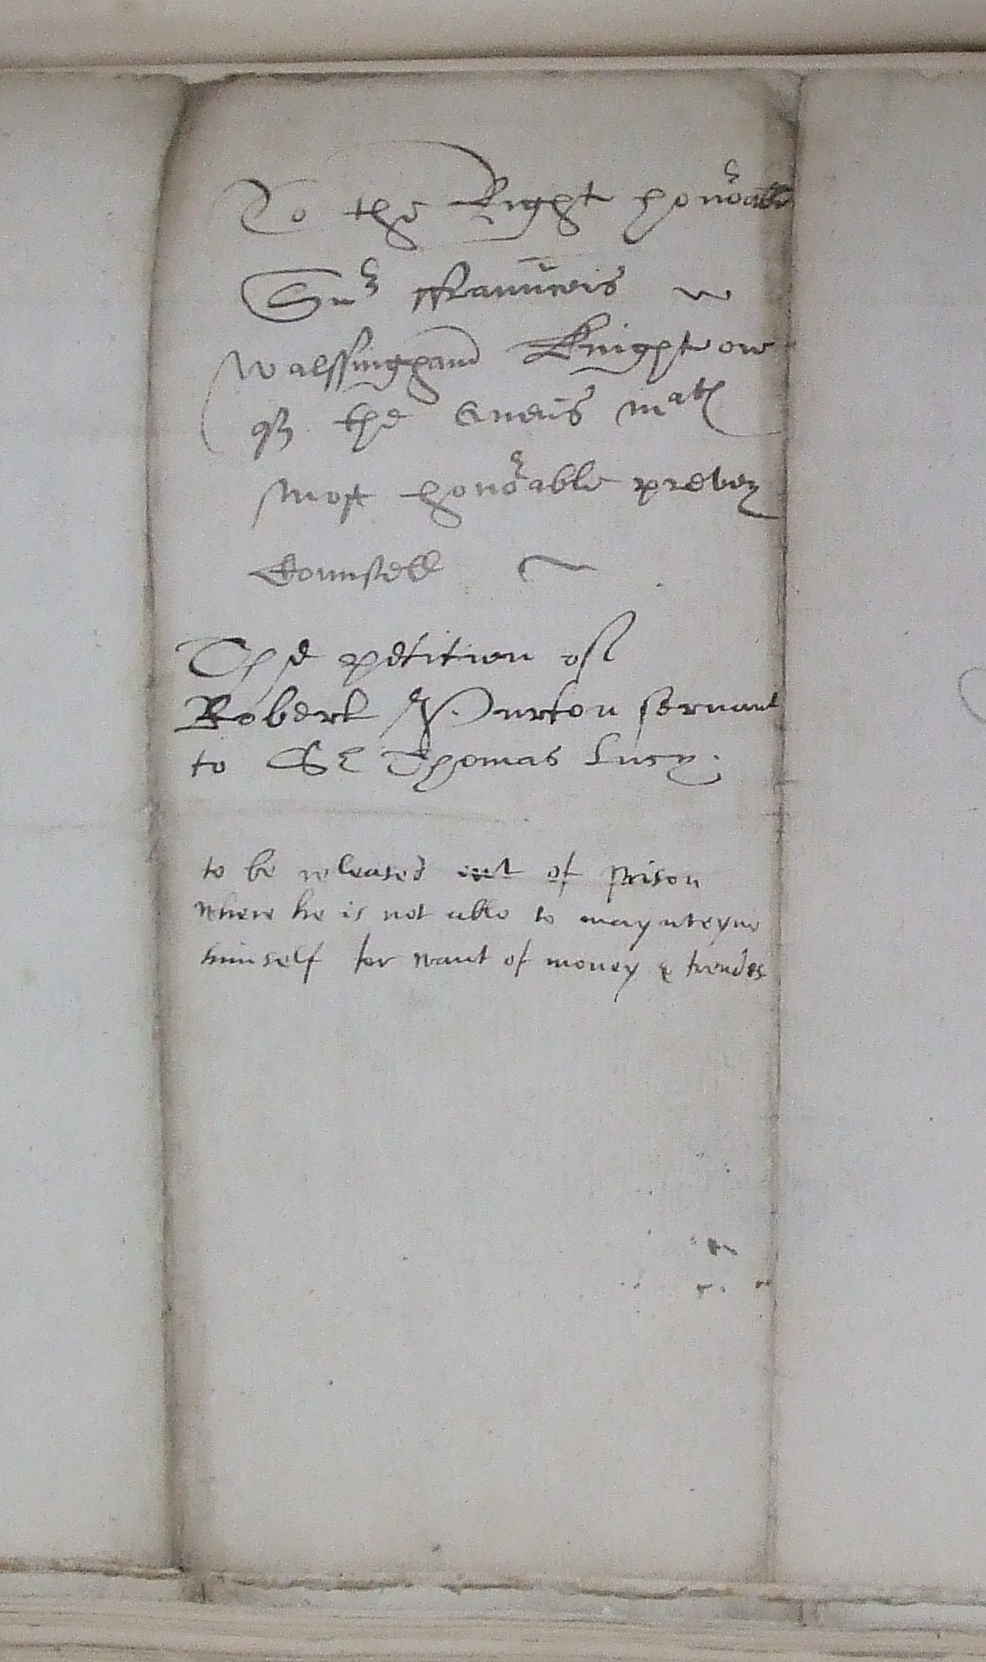 To the Right honorable
Sir ffrauncis
Walssingham Knight one
of the Quenis matis
most honorable prevey
Counsell
The petition of
Robert Purton servant
to Sr Thomas Lucy.
to be released out of prison
where he is not able to maynteyne
himself for want of money & frendes